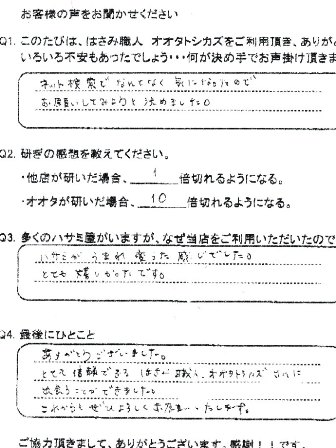 お客様の声をお聞かせください
Q1. このたびは、はさみ職人 オオタトシカズをご利用頂き、ありが
いろいろ不安もあったでしょう・・・何が決め手でお声掛け頂きま
ネット検索で なんとなく 気になったので
お願いしてみようと決めました。
Q2. 研ぎの感想を教えてください。
・他店が研いだ場合、 1 倍切れるようになる。
・オオタが研いだ場合、 10 倍切れるようになる。
Q3. 多くのハサミ屋がいますが、なぜ当店をご利用いただいたので
ハサミが うまれ 変った 感じでした。
とても 嬉しかったです。
Q4. 最後にひとこと
ありがとうございました。
とても 信頼できる はさみ職人、オオタトシカズ さんに
出会うことができました。
これからも ぜひ よろしく お願い いたします。
ご協力頂きまして、ありがとうございます。感謝！！です。